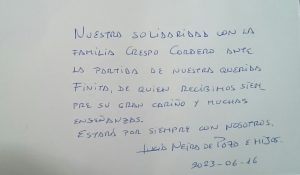 NUESTRA SOLIDARIDAD CON LA
FAMILIA CRESPO CORDERO ANTE
LA PARTIDA DE NUESTRA QUERIDA
FINITA, DE QUIEN RECIBIMOS SIEM
PRE SU GRAN CARIÑO Y MUCHAS
ENSEÑANZAS.
ESTARÁ POR SIEMPRE CON NOSOTROS.
NEIRA DE POZO E HIJOS.
2023-06-16